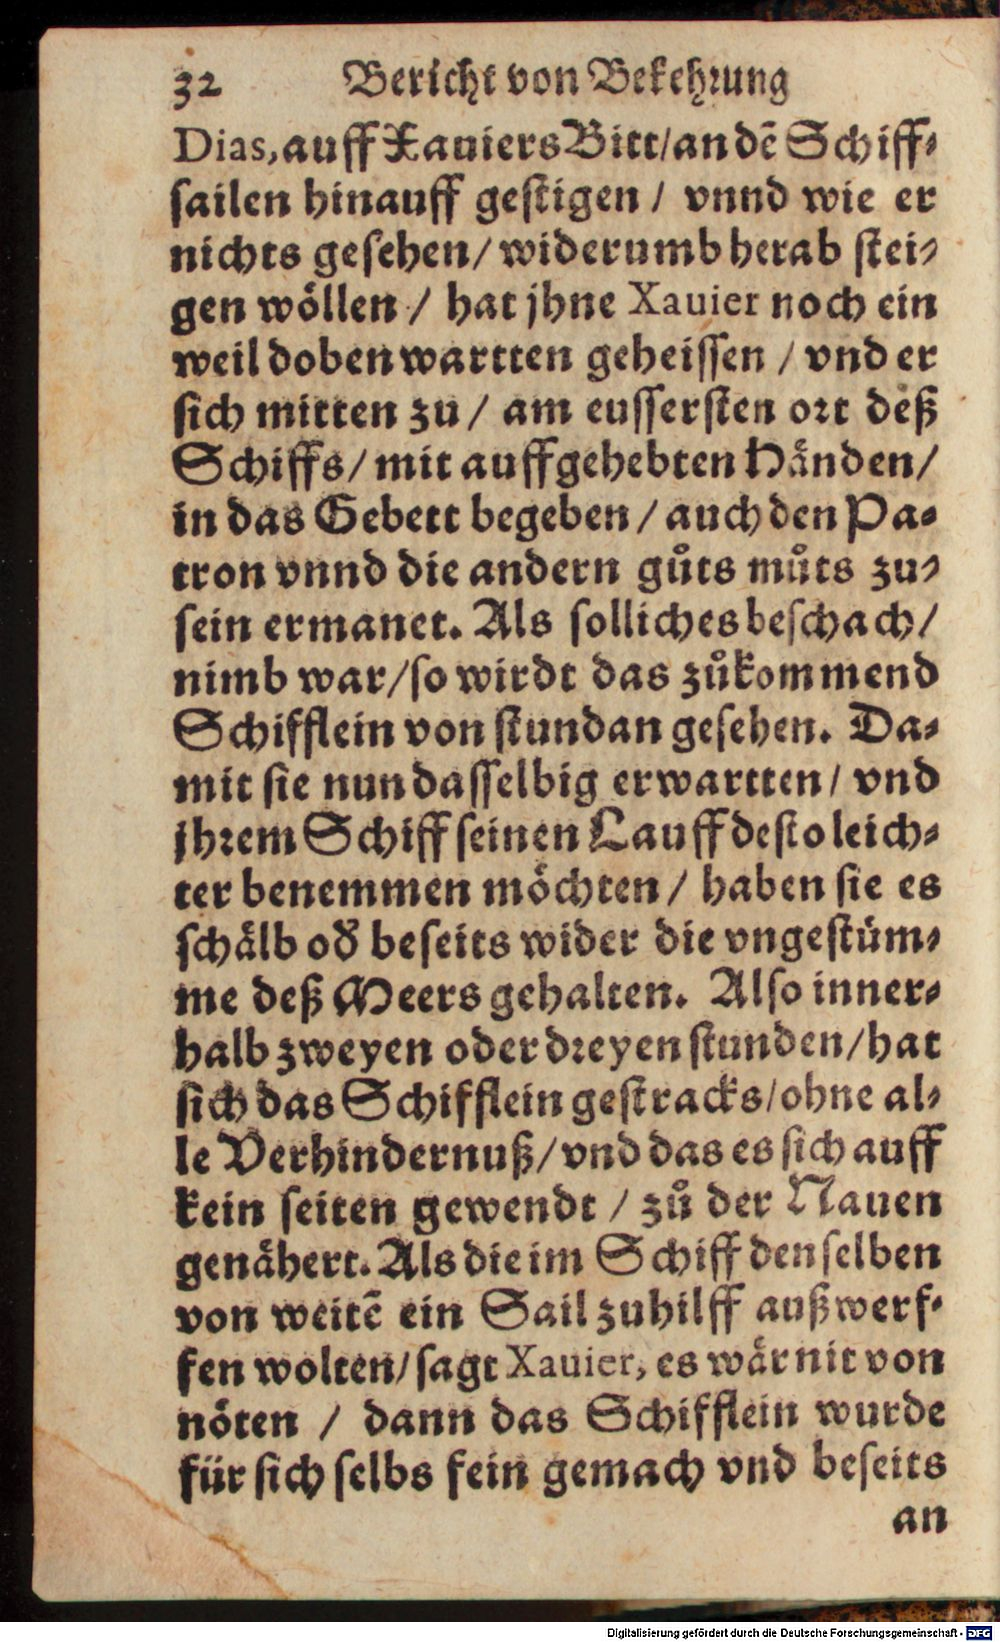 32 Bericht von Bekehꝛung
Dias, auff Xauiers Bitt/ an dē Schiff⸗
ſailen hinauff geſtigen / vnnd wie er
nichts geſehen/ widerumb herab ſtei⸗
gen woͤllen / hat jhne Xauier noch ein
weil doben wartten geheiſſen / vnd er
ſich mitten zu / am euſſerſten oꝛt deß
Schiffs/ mit auffgehebten Haͤnden/
in das Gebett begeben / auch den Pa⸗
tron vnnd die andern guͦts muͦts zu⸗
ſein ermanet. Als ſolliches beſchach/
nimb war/ ſo wirdt das zuͦkommend
Schifflein von ſtundan geſehen. Da⸗
mit ſie nun daſſelbig erwartten/ vnd
jhꝛem Schiff ſeinen Lauff deſto leich⸗
ter benemmen moͤchten / haben ſie es
ſchaͤlb od̕ beſeits wider die vngeſtuͤm⸗
me deß Meers gehalten. Alſo inner⸗
halb zweyen oder dꝛeyen ſtunden/ hat
ſich das Schifflein geſtracks/ ohne al⸗
le Verhindernuß/ vnd das es ſich auff
kein ſeiten gewendt / zuͦ der Nauen
genaͤhert. Als die im Schiff denſelben
von weitē ein Sail zuhilff außwerf⸗
fen wolten/ ſagt Xauier, es waͤr nit von
noͤten / dann das Schifflein wurde
fuͤr ſich ſelbs fein gemach vnd beſeits
an
Digitalisierung gefördert durch die Deutsche Forschungsgemeinschaft - DFG